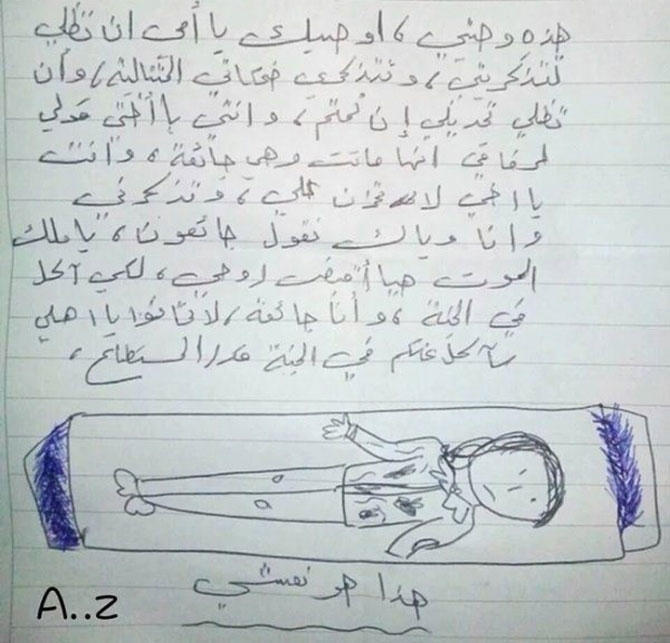 هذه وصيتي ، اوصيك يا أمي ان تظلي
تتذكريني ، وتتذكري ضحكاتي التتالية ، وأن
تظلي تحديني إن نمتم ، وانتي يا أختي قولي
لرفاقي انها ماتت وهي جائعة ، وأنت
يا اخي لا تحزن علي ، وتذكرني
وانا وياك نقول جائعون ، يا ملك
الموت هيا أقبض روحي ، لكي آكل
في الجنة ، وأنا جائعة ، لا تخافوا يا اهلي
سآكل عنكم في الجنة قدر المستطاع ،
هذا هو نعشي
A..z